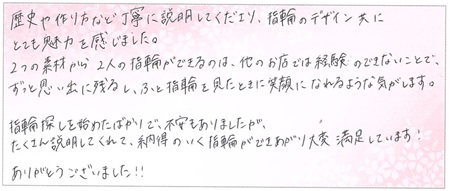 歴史や作り方など丁寧に説明してくださり、指輪のデザイン共に
とても魅力を感じました。
2つの素材から2人の指輪ができるのは、他のお店では経験のできないことで、
ずっと思い出に残るし、ふと指輪を見たときに笑顔になれるような気がします。
指輪探しを始めたばかりで、不安もありましたが、
たくさん説明してくれて、納得のいく指輪ができあがり大変満足しています!
ありがとうございました!!